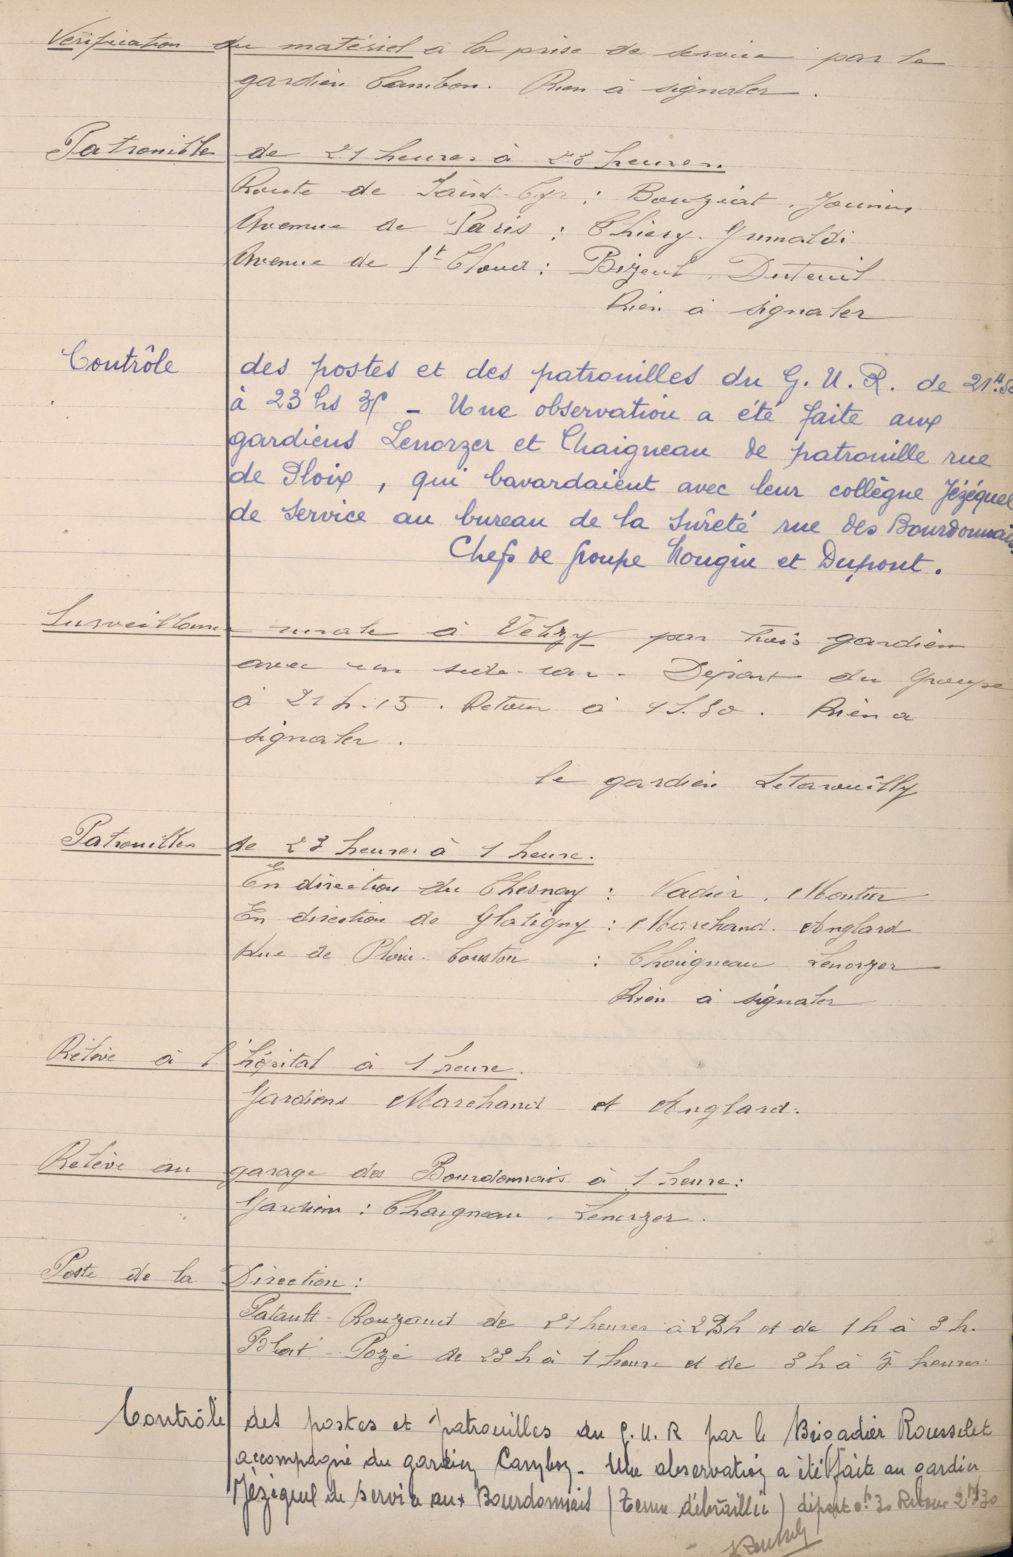 Vérification du matériel à la prise de service par le
gardien Cambon. Rien à signaler.
Patrouille de 21 heures à 23 heures.
Route de Saint-Cyr : Bouziat. Jounin
Avenue de Paris : Thiery. Grimaldi
Avenue de St Cloud : Bizeul. Duteuil
Rien à signaler
Contrôle des postes et des patrouilles du G. U. R. de 21h
à 23 hs - Une observation a été faite aux
gardiens Lenorzer et Chaigneau de patrouille rue
de Ploix, qui bavardaient avec leur collègue Jézéquel
de service au bureau de la Sûreté rue des Bourdonnais
Chefs de groupe Nougin et Dupont.
Surveillance à Velizy par trois gardiens
avec un side-car. Départ du Groupe
à 21 h. 15. Retour à Rien a
signaler.
le gardien Letarouilly
Patrouilles de 23 heures à 1 heure.
En direction du Chesnay : Vadier. Montier
En direction de Glatigny : Marchand. Anglard
Rue de Ploix. Couston : Chaigneau Lenorzer
Rien à signaler
Relève à l'hôpital à 1 heure.
Gardiens Marchand et Anglard.
Relève au garage des Bourdonnais à 1 heure :
Gardiens : Chaigneau. Lenorzer.
Poste de la Direction :
Patault - Rouzaud de 21 heures à 23h et de 1h à 3h.
Blot - Pozé de 23h à 1 heure et de 3h à 5 heures.
Contrôle des postes et patrouilles du G. U. R par le Brigadier Rousselet
accompagné du gardien Cambon. Une observation a été faite au gardien
Jézéquel de service aux Bourdonnais (Tenue débraillée) départ 0h30 Retour 2h30